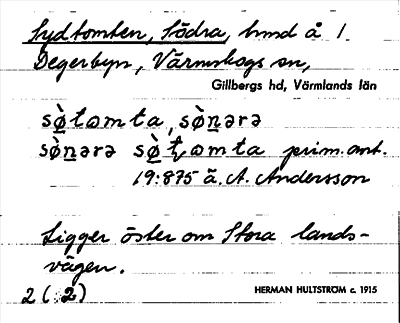 Sydtomten, Södra, hmd å 1
Degerbyn, Värmskogs sn,
Gillbergs hd, Värmlands län
sø̀tωmta, sø̀nərə
sø̀nərə sø̀tωmta prim.ant.
19:875 ä. A. Andersson
Ligger öster om Stora lands-
vägen.
2(:2)
HERMAN HULTSTRÖM c. 1915